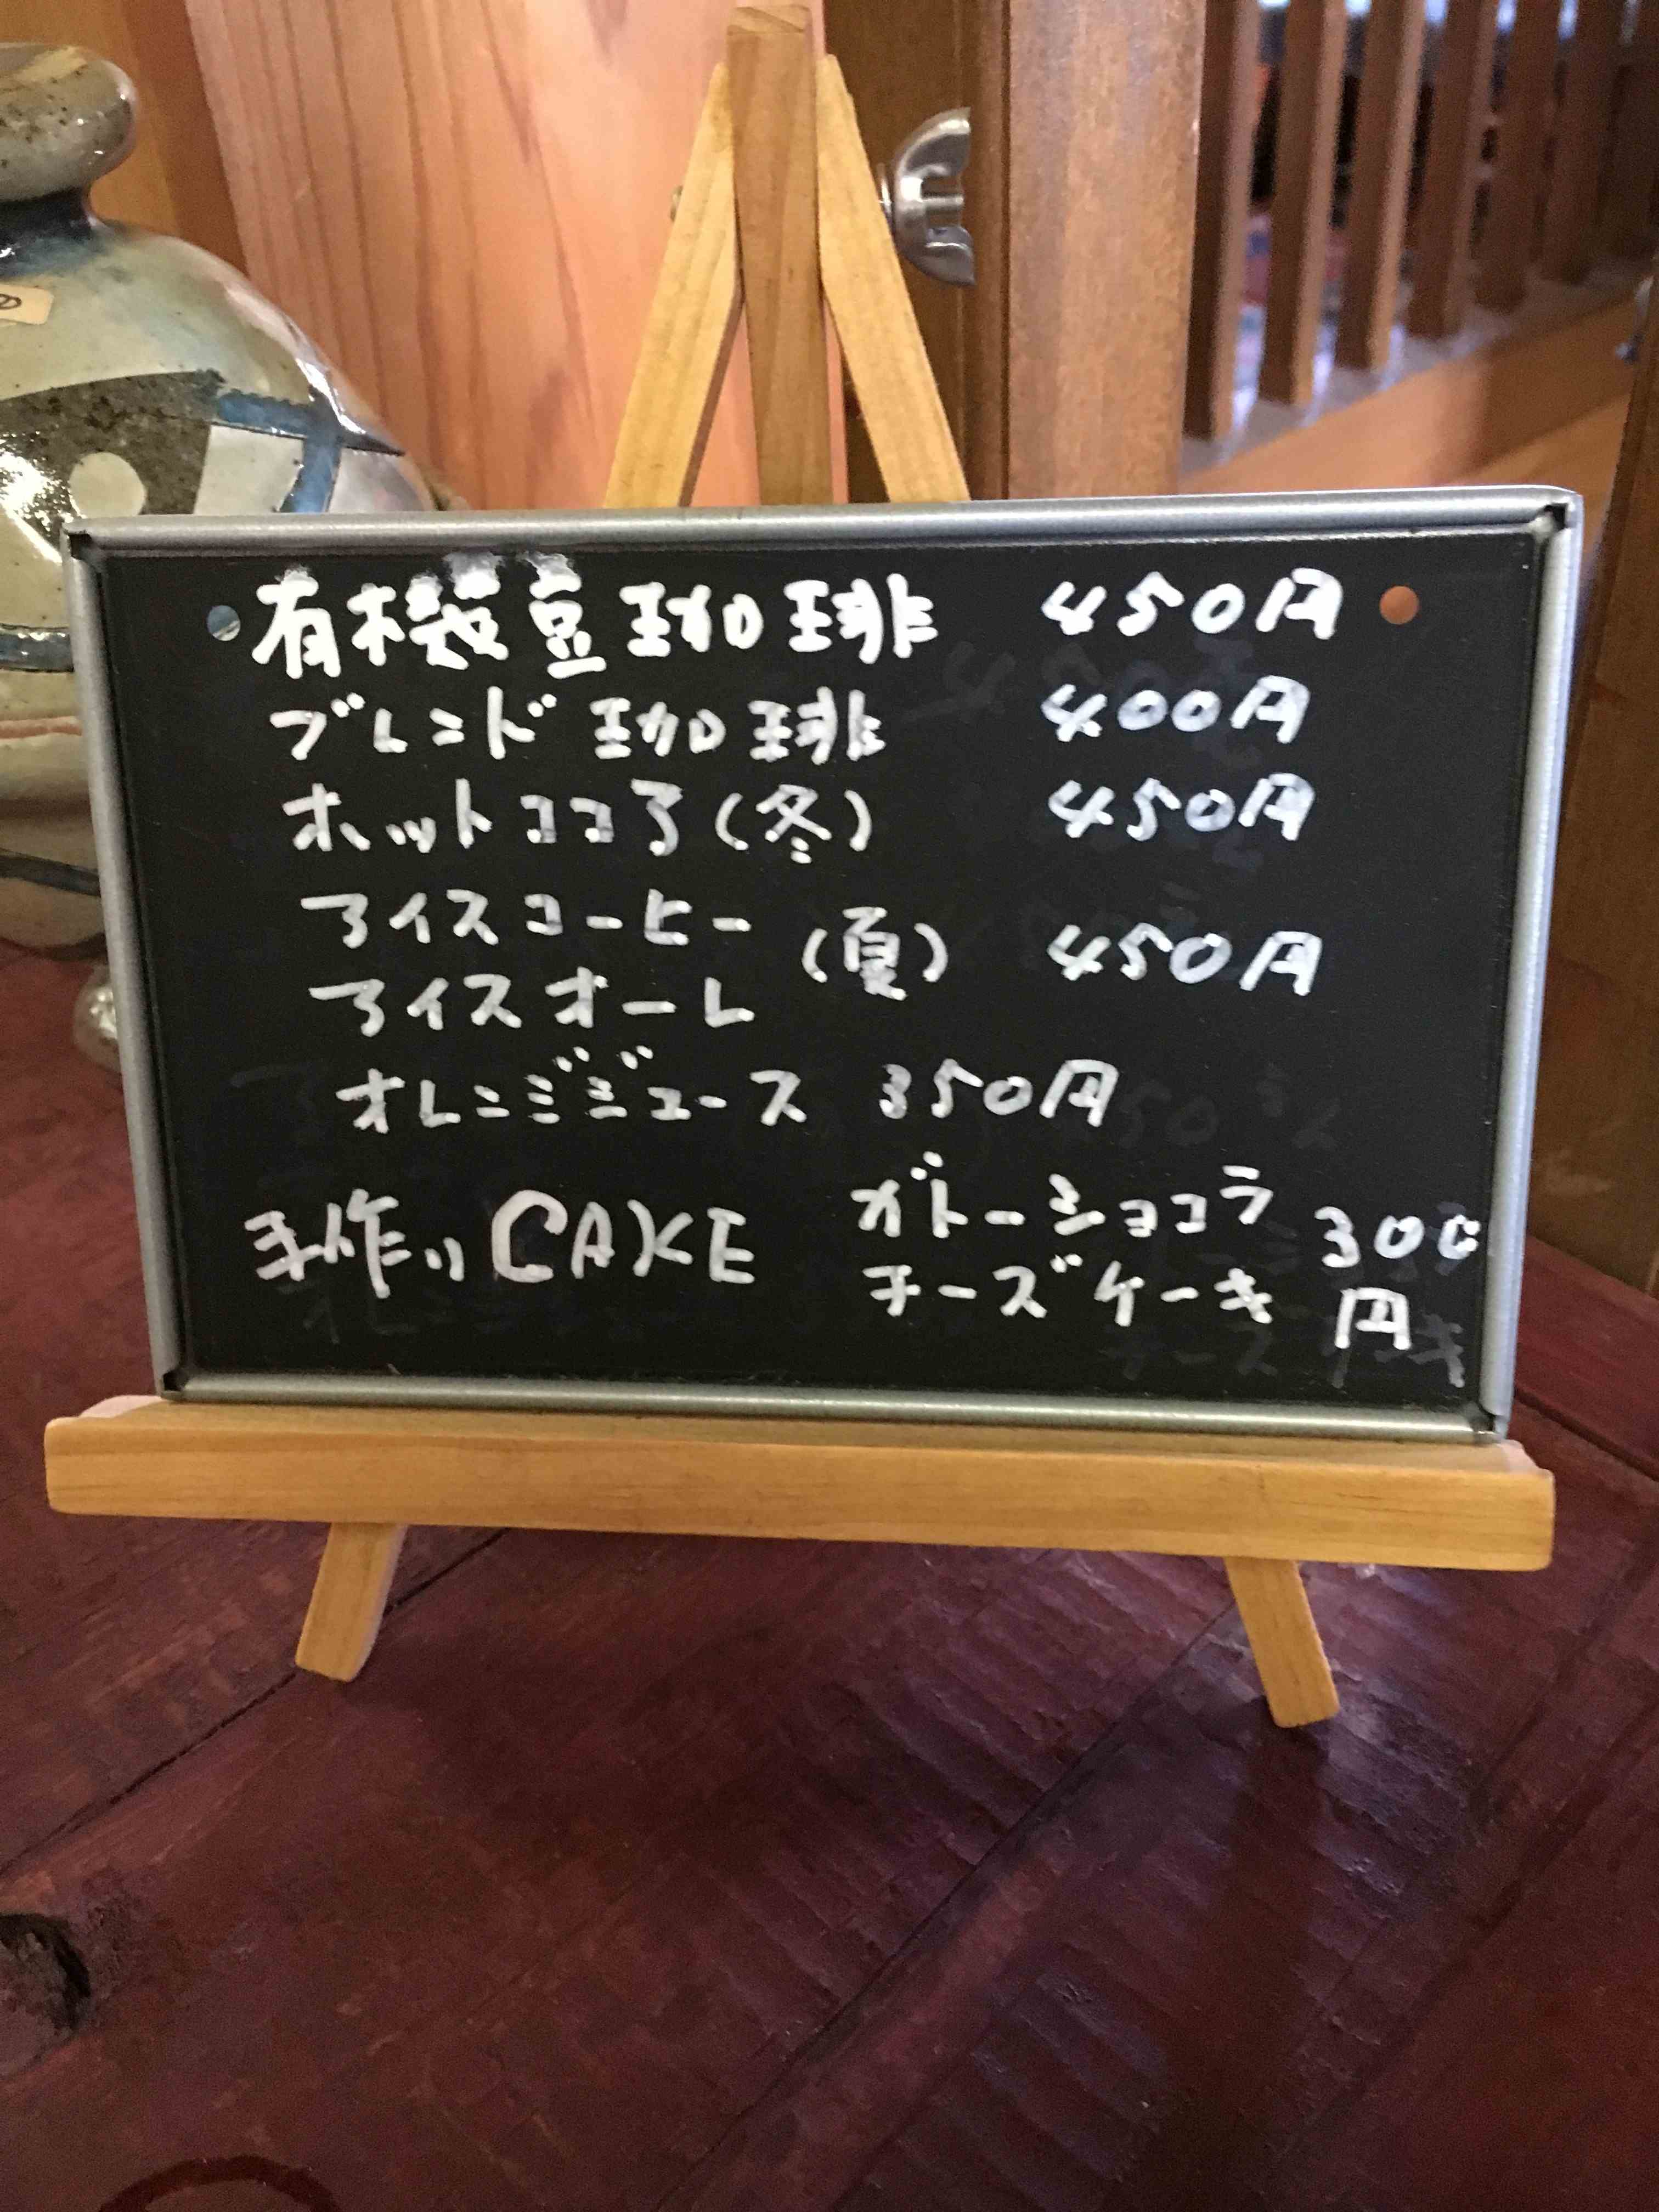 有機豆珈琲 450円
ブレンド珈琲 400円
ホットココア(冬) 450円
アイスコーヒー
(夏) 450円
アイスオーレ
オレンジジュース 350円
手作り CAKE
ガトーショコラ
チーズケーキ
300
円